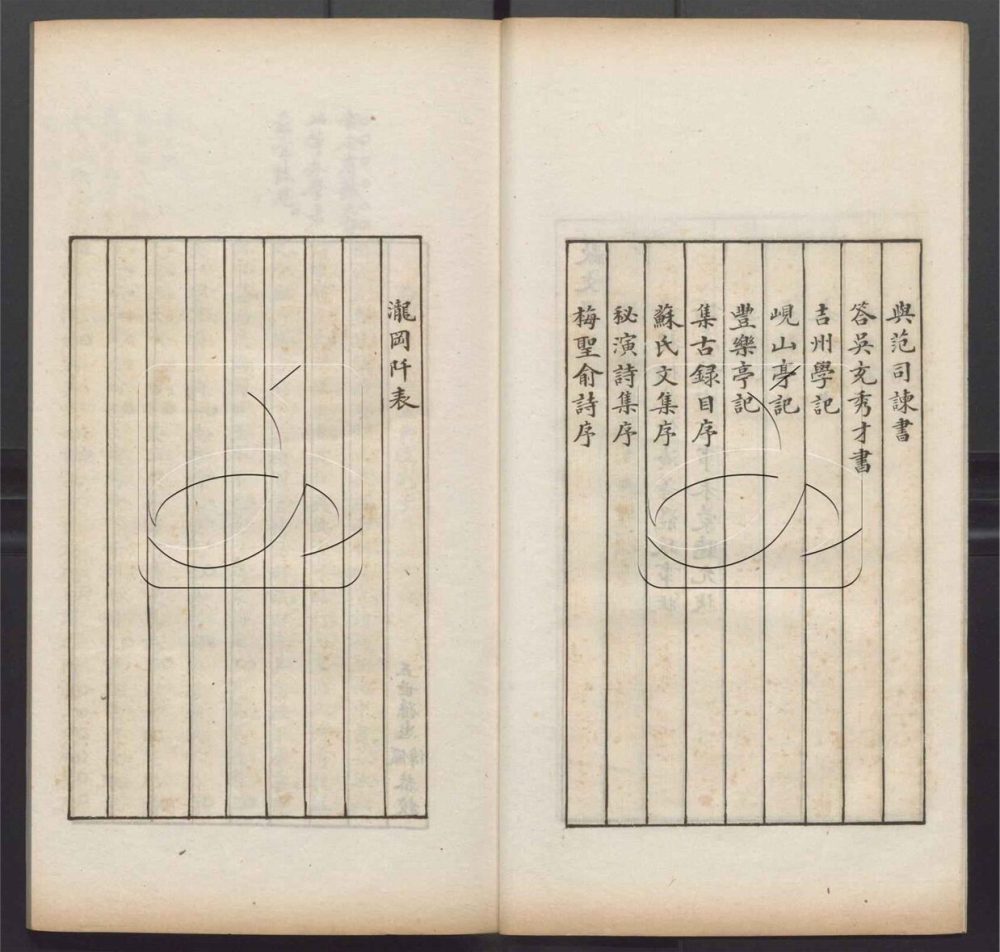 與范司諫書
答吳充秀才書
吉州學記
峴山亭記
豐樂亭記
集古録目序
蘇氏文集序
秘演詩集序
梅聖俞詩序
瀧岡阡表